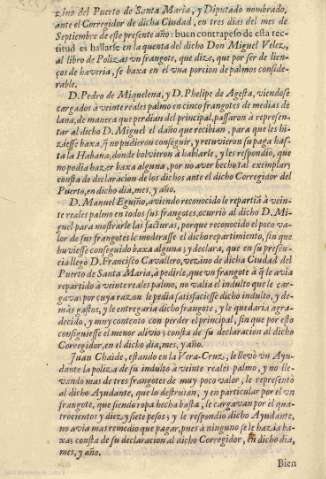 zino del Puerto de Santa Maria, y Diputado nombrado,
ante el Corregidor de dicha Ciudad, en tres dias del mes de
Septiembre de este presente año: buen contrapeso de esta rec-
titud es hallarse en la quenta del dicho Don Miguel Velez,
al libro de Polizas un frangote, que dize, que por ser de lien-
ços de haveria, se baxa en el una porcion de palmos conside-
rable.
D. Pedro de Miquelena, y D. Phelipe de Agesta, viendose
cargados à veinte reales palmo en cinco frangotes de medias de
lana, de manera que perdian del principal, passaron à represen-
tar al dicho D. Miguel el daño que recibian, para que les hi-
ziesse baxa, q̃ no pudieron conseguir, y retuvieron su paga hasta
la Habana, donde bolvieron à hablarle, y les respondiò, que
no podia hazer baxa alguna, por no aver hecho tal exemplar;
consta do declaracion de los dichos ante el dicho Corregidor del
Puerto, en dicho dia, mes, y año.
D. Manuel Eguiño, aviendo reconocido le repartia à vein-
te reales palmo en todos sus frangotes, ocurriò al dicho D. Mi-
guel para mostrarle las facturas, porque reconocido el poco va-
lor de sus frangotes le moderasse el dicho repartimiento, sin que
huviesse conseguido baxa alguna; y declara, que en su presen-
cia llegò D. Francisco Cavallero, vezino de dicha Ciudad del
Puerto de Santa Maria, à pedirle, que un frangote à q̃ le avia
repartido à veinte reales palmo, no valia el indulto que le car-
gava; por cuya razon le pedia satisfaciesse dicho indulto, y de-
màs gastos, y le entregaria dicho frangote, y le quedaria agra-
decido, y muy contento con perder el principal, sin que por esto
consiguiesse el menor alivio; consta de su declaracion al dicho
Corregidor, en el dicho dia, mes, y año.
Juan Chaide, estando en la Vera-Cruz, le llevò un Ayu-
dante la poliza de su indulto à veinte reales palmo, y no lle-
vando mas de tres frangotes de muy poco valor, le representò
al dicho Ayudante, que lo destruian, y en particular por el un
frangote, que siendo ropa hecha basta, le cargavan por el qua-
trocientos y diez y siete pesos; y le respondiò dicho Ayudante,
no avia mas remedio que pagar, pues à ninguno se le hazia ba-
xa; consta de su declaracion al dicho Corregidor, en dicho dia,
mes, y año.
Bien